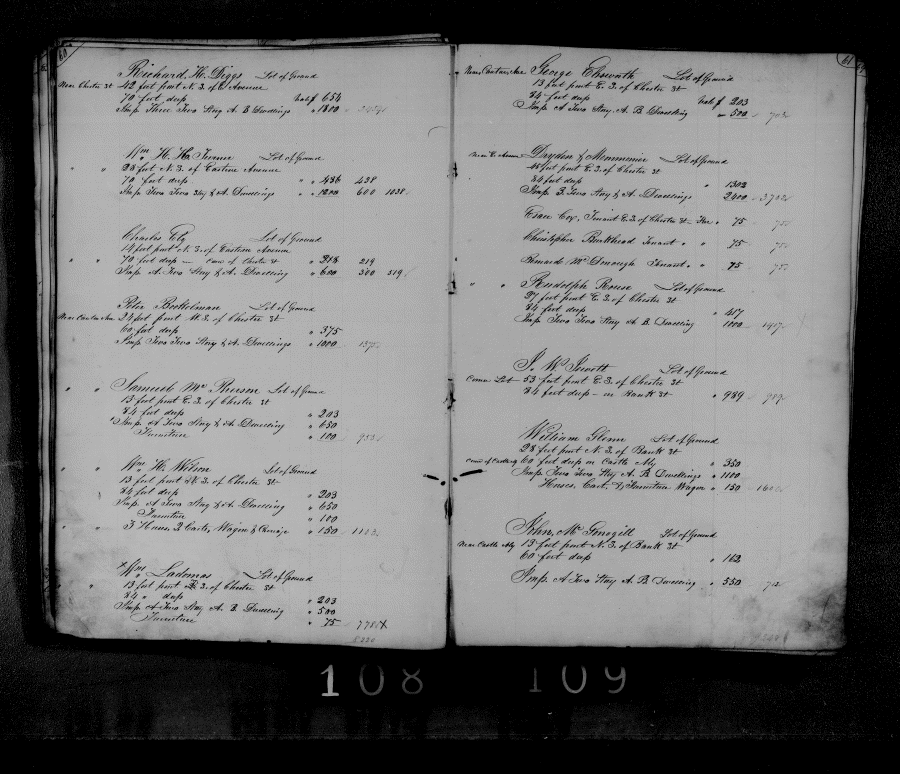 60
Richard H. Diggs Lot of Ground
Near Chester St 42 feet front N. S. of E Avenue
70 feet deep Val of 654
Imp Three Two Story A. B Dwellings " 1800
Wm H. H. Lot of Ground
" " 28 feet N. S. of Eastern Avenue
70 feet deep " " 436 438
Imp Two Two Story & A. Dwellings " 1200 600 1038
Charles Lot of Ground
14 feet front N. S. of Eastern Avenue
" " 70 feet deep — Chester St " 218 219
Imp A Two Story & A. Dwelling " 600 300 519
Peter Lot of Ground
Near Canton Ave 24 feet front of Chester St
60 feet deep " 375
Imp Two Two Story & A. Dwellings " 1000 1375
Samuel Mc Lot of Ground
" " 13 feet front E. S. of Chester St
84 feet deep " 203
Imp A Two Story & A Dwelling " 650
Furniture " 100 953
Wm H. Wilson Lot of Ground
" " 13 feet front of Chester St
84 feet deep " 203
Imp A Two Story & A Dwelling " 650
Furniture " 100
" " 3 Horses 2 Carts, Wagon & " 150 1103
Wm Lademas Lot of Ground
" " 13 feet front E. S. of Chester St
84 " deep " 203
Imp A Two Story A. B Dwelling " 500
Furniture " 75 778
61
Near Canton Ave George Lot of Ground
13 feet front E. S. of Chester St
84 feet deep Val of 203
Imp A Two Story A. B Dwelling " 500 703
Near E Avenue Dryden & Lot of Ground
feet front E. S. of Chester St
84 feet deep " 1302
Imp 3 Two Story & A. Dwellings 2400 3702
Coy, Tenant E. S. of Chester St " 75 75
Christopher Burkhead Tenant " " 75 75
Bernard McDonough Tenant " " 75 75
" " Rudolph Lot of Ground
27 feet front E. S. of Chester St
84 feet deep " 417
Imp Two Two Story A B. Dwelling 1000 1417
J. W. Lot of Ground
Corner Lot 53 feet front E. S. of Chester St
84 feet deep — on Bank St " 989 989
William Glenn Lot of Ground
28 feet front N. S. of Bank St
60 feet deep on Castle Aly " 350
Imp Two Two Story A. B. Dwellings " 1100
Horses, Cart, & Furniture Wagon " 150 1600
John, Mc Lot of Ground
Near Castle Aly 13 feet front N. S. of Bank St
60 feet deep " 162
Imp A Two Story A. B Dwelling " 550 712
108 109